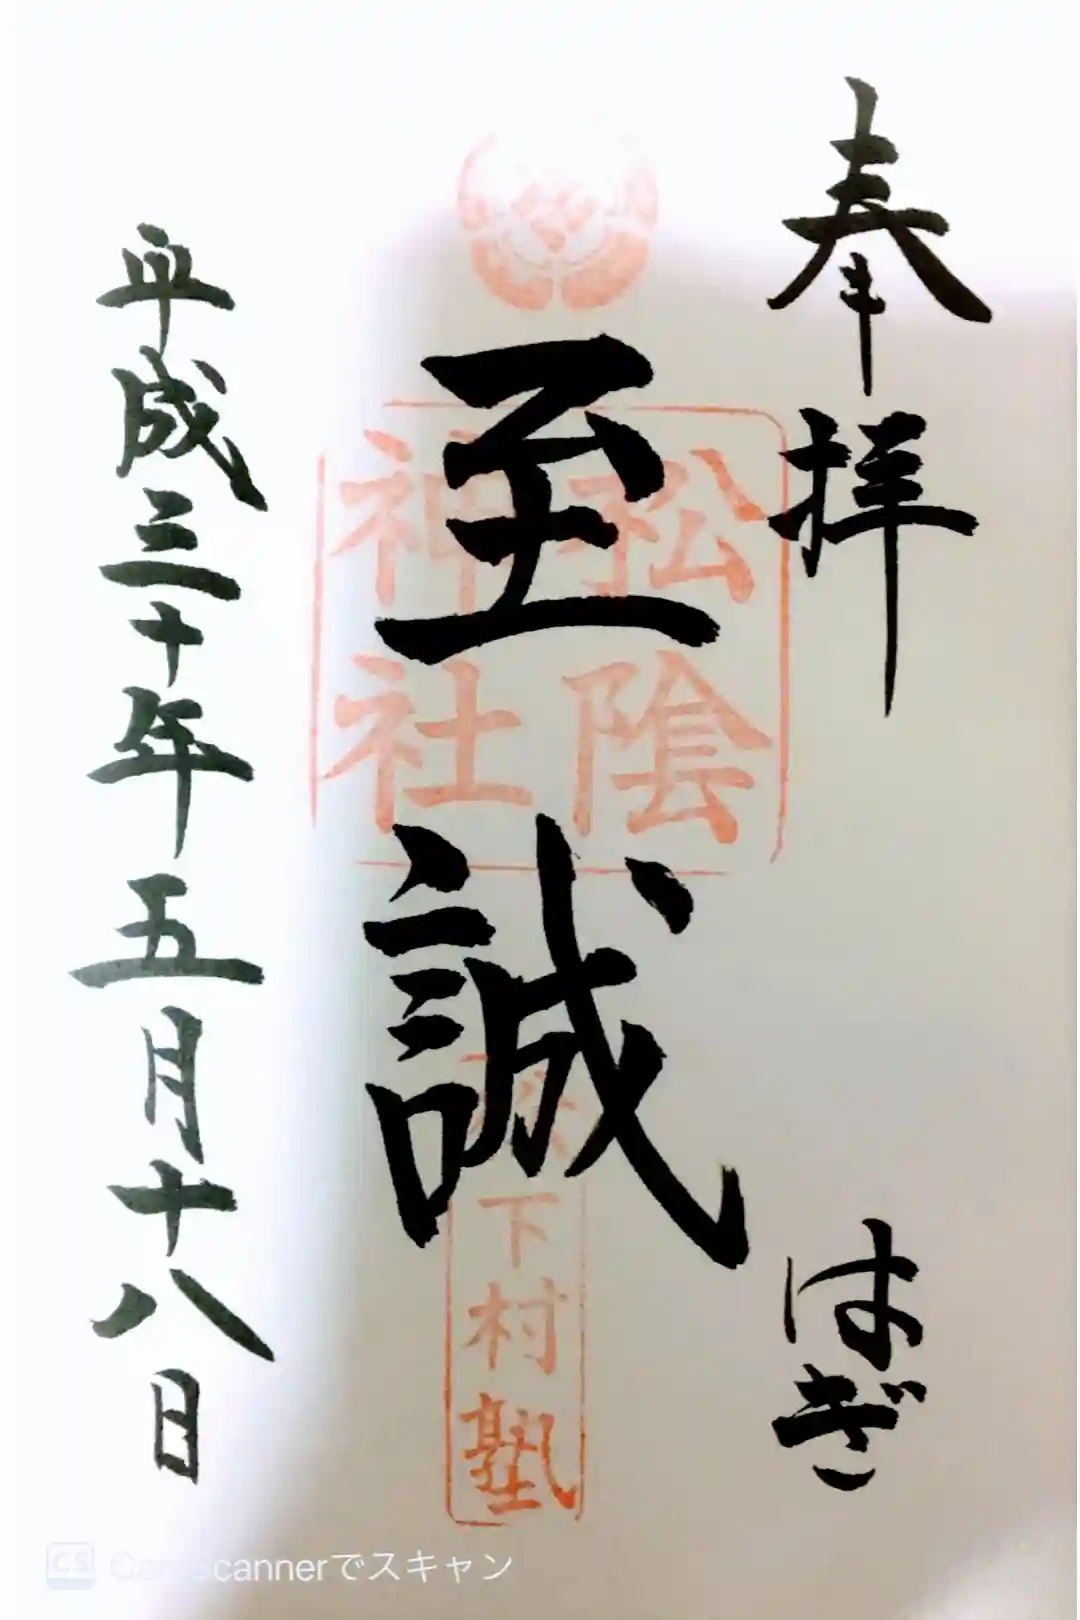 奉拝
はぎ
至誠
松陰
神社
松下村塾
平成三十年五月十八日
CS CamScannerでスキャン